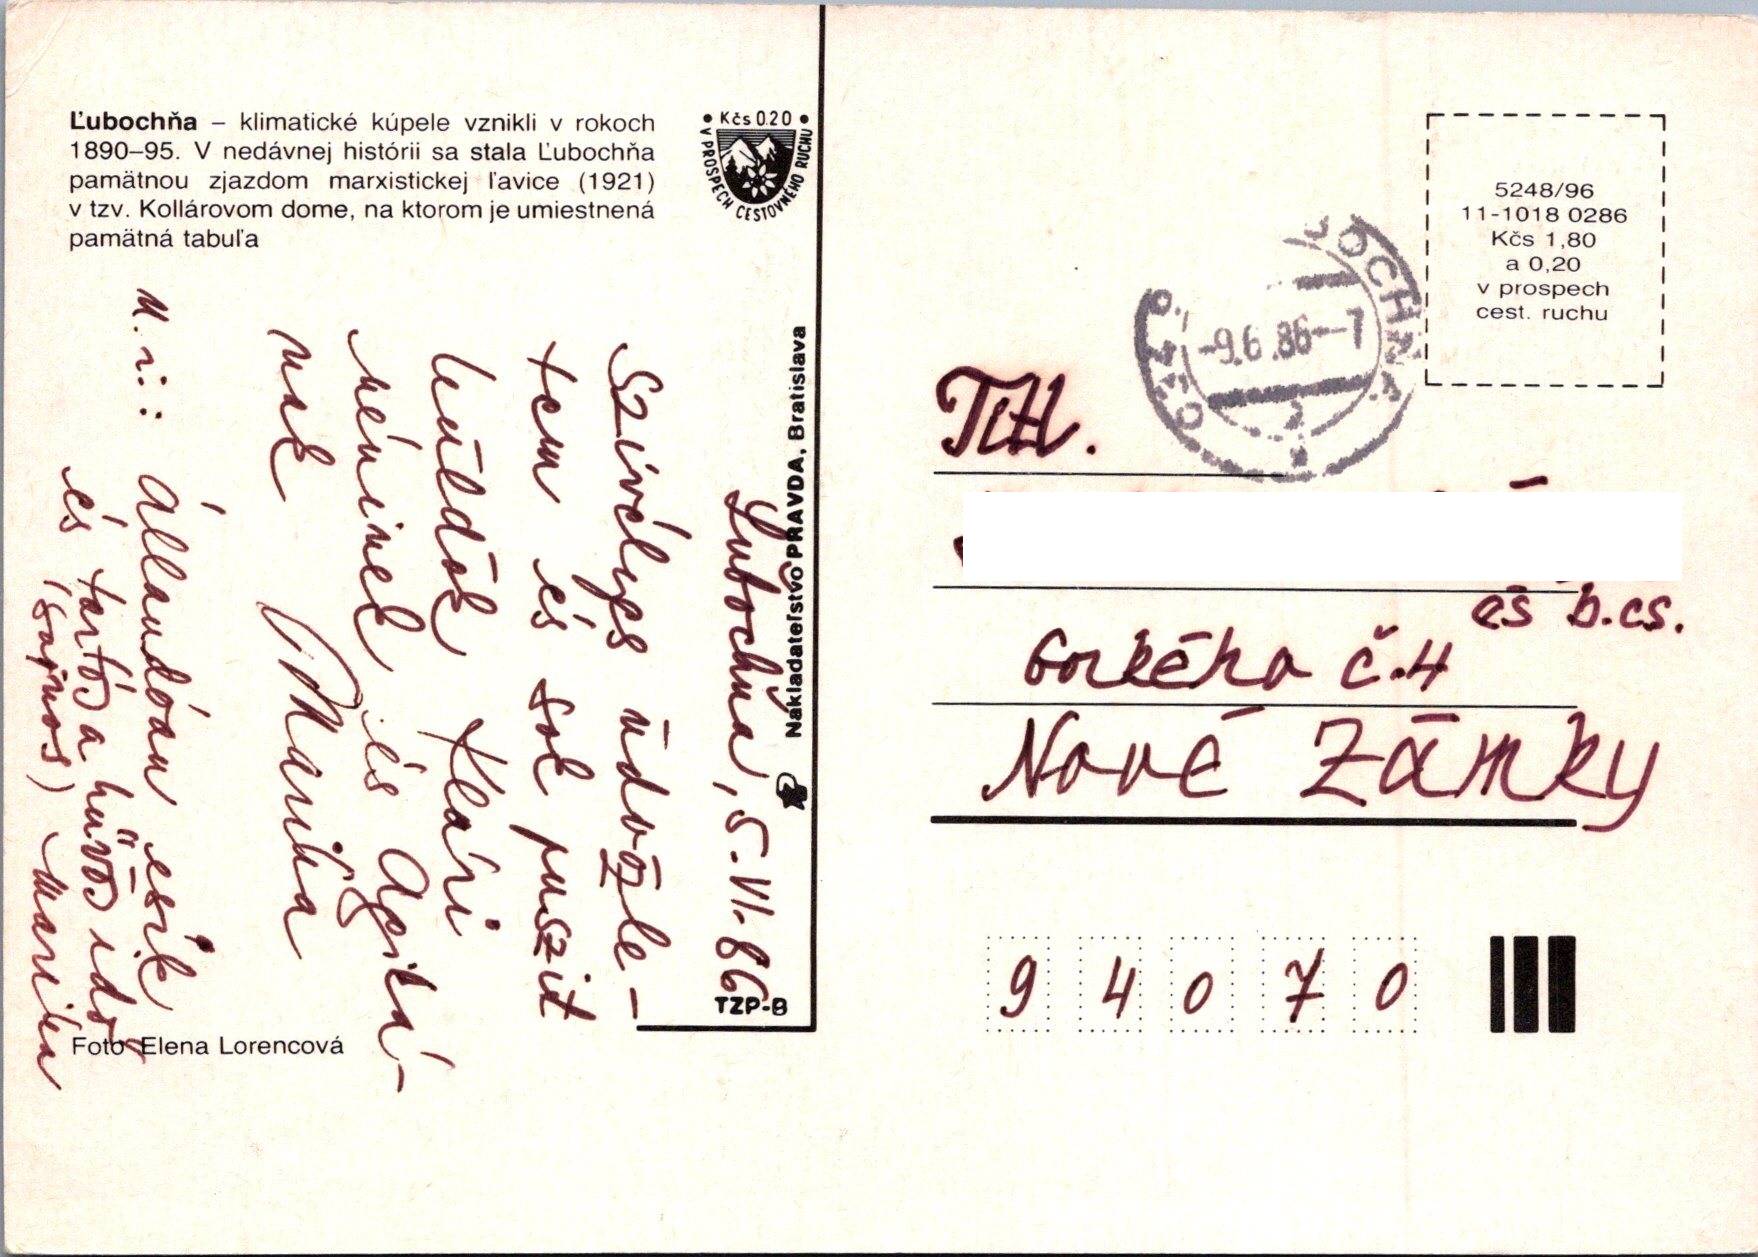 Ľubochňa – klimatické kúpele vznikli v rokoch
1890–95. V nedávnej histórii sa stala Ľubochňa
pamätnou zjazdom marxistickej ľavice (1921)
v tzv. Kollárovom dome, na ktorom je umiestnená
pamätná tabuľa
• Kčs 0.20 •
V PROSPECH CESTOVNÉHO RUCHU
Lubochňa, 5. VI. 86
Szivélyes üdvözle-
tem és sok puszit
küldök Klári
néninek és Ágiká-
nak
Marika
U. i.: Állandóan esik
és tartós a hűvös idő
(sajnos) Marika
Foto Elena Lorencová
Nakladateľstvo PRAVDA, Bratislava
TZP-B
5248/96
11-1018 0286
Kčs 1,80
a 0,20
v prospech
cest. ruchu
-9.6.86--7
Tit.
és b.cs.
Gorkého č.4
Nové Zámky
94070